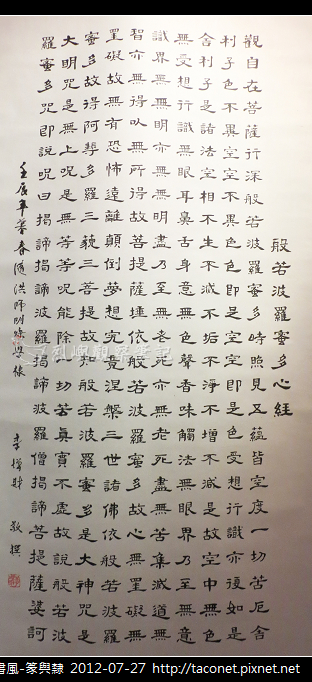 般若波羅蜜多心經
觀自在菩薩行深般若波羅蜜多時照見五蘊皆空度一切苦厄舍
利子色不異空空不異色色即是空空即是色受想行識亦復如是
舍利子是諸法空相不生不滅不垢不淨不增不減是故空中無色
無受想行識無眼耳鼻舌身意無色聲香味觸法無眼界乃至無意
識界無無明亦無無明盡乃至無老死亦無老死盡無苦集滅道無
智亦無得以無所得故菩提薩埵依般若波羅蜜多故心無罣礙無
罣礙故無有恐怖遠離顛倒夢想究竟涅槃三世諸佛依般若波羅
蜜多故得阿耨多羅三藐三菩提故知般若波羅蜜多是大神咒是
大明咒是無上咒是無等等咒能除一切苦真實不虛故說般若波
羅蜜多咒即說咒曰揭諦揭諦波羅揭諦波羅僧揭諦菩提薩婆訶
壬辰年暮春隨洪師明燦學隸
李 財 敬撰
書風-篆與隸 2012-07-27 http://taconet.pixnet.net